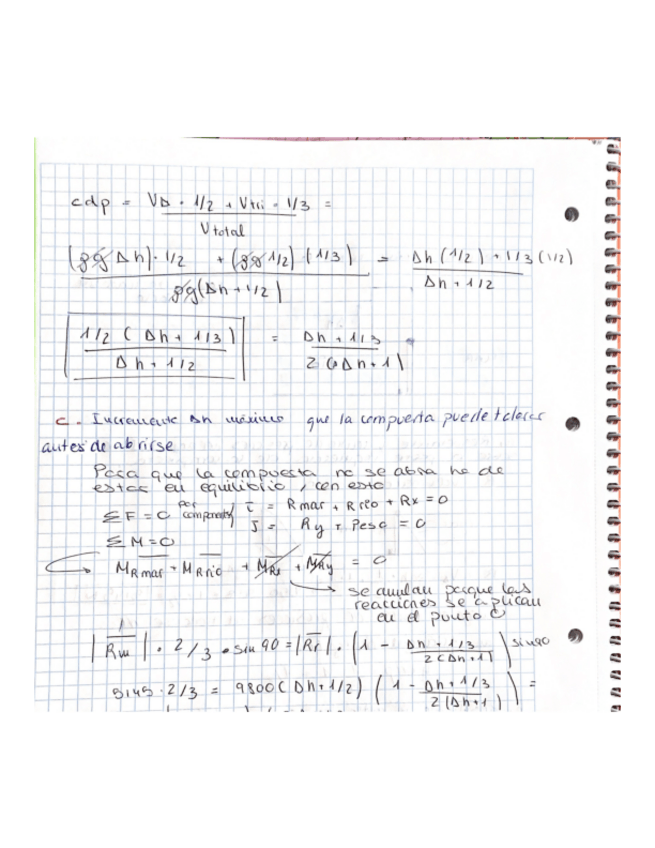 cdp = V▷ · 1/2 + Vtri · 1/3 =
Vtotal
(ρg Δh) · 1/2 + (ρg 1/2) (1/3) = Δh (1/2) + 1/3 (1/2)
ρg (Δh + 1/2) Δh + 1/2
1/2 ( Δh + 1/3 ) = Δh + 1/3
Δh + 1/2 2 (Δh + 1)
c. Incremente Δh máximo que la compuerta puede tolerar
antes de abrirse
Para que la compuesta no se abra ha de
estar en equilibrio, con esto
ΣF = 0 por componentes i = Rmar + Rrio + Rx = 0
J = Ry + Peso = 0
ΣM = 0
MRmar + MRrio + MRx + MRy = 0
se anulan porque las
reacciones se aplican
en el punto O
|Rm| · 2/3 · sin 90 = |Rr| · (1 - Δh + 1/3 / 2(Δh+1)) sin 90
5145 · 2/3 = 9800 (Δh + 1/2) (1 - Δh + 1/3 / 2(Δh+1)) =